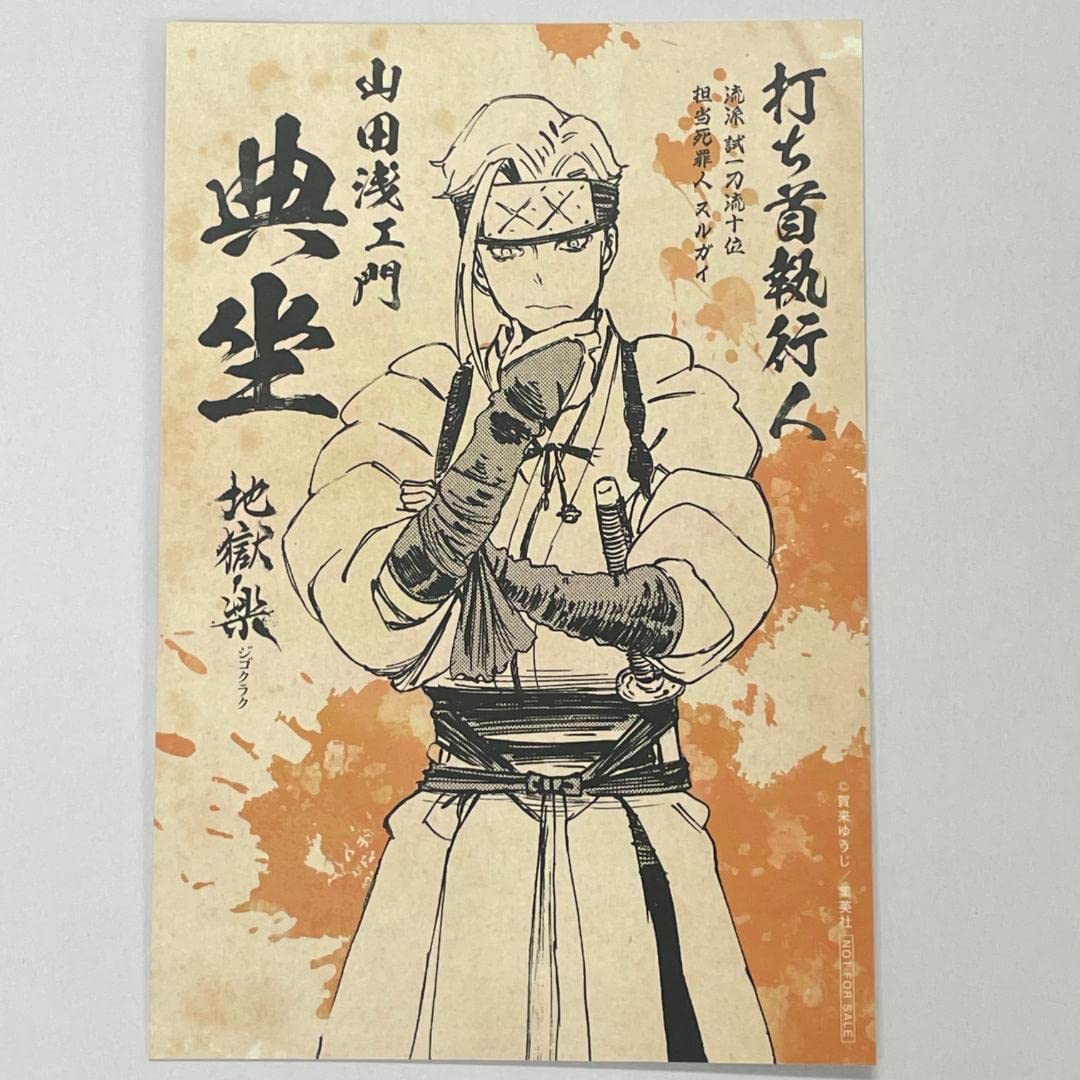 打ち首執行人
流派 試一刀流十位
担当死罪人 ヌルガイ
山田浅ェ門
典坐
地獄楽
ジゴクラク
©賀来ゆうじ／集英社
NOT FOR SALE